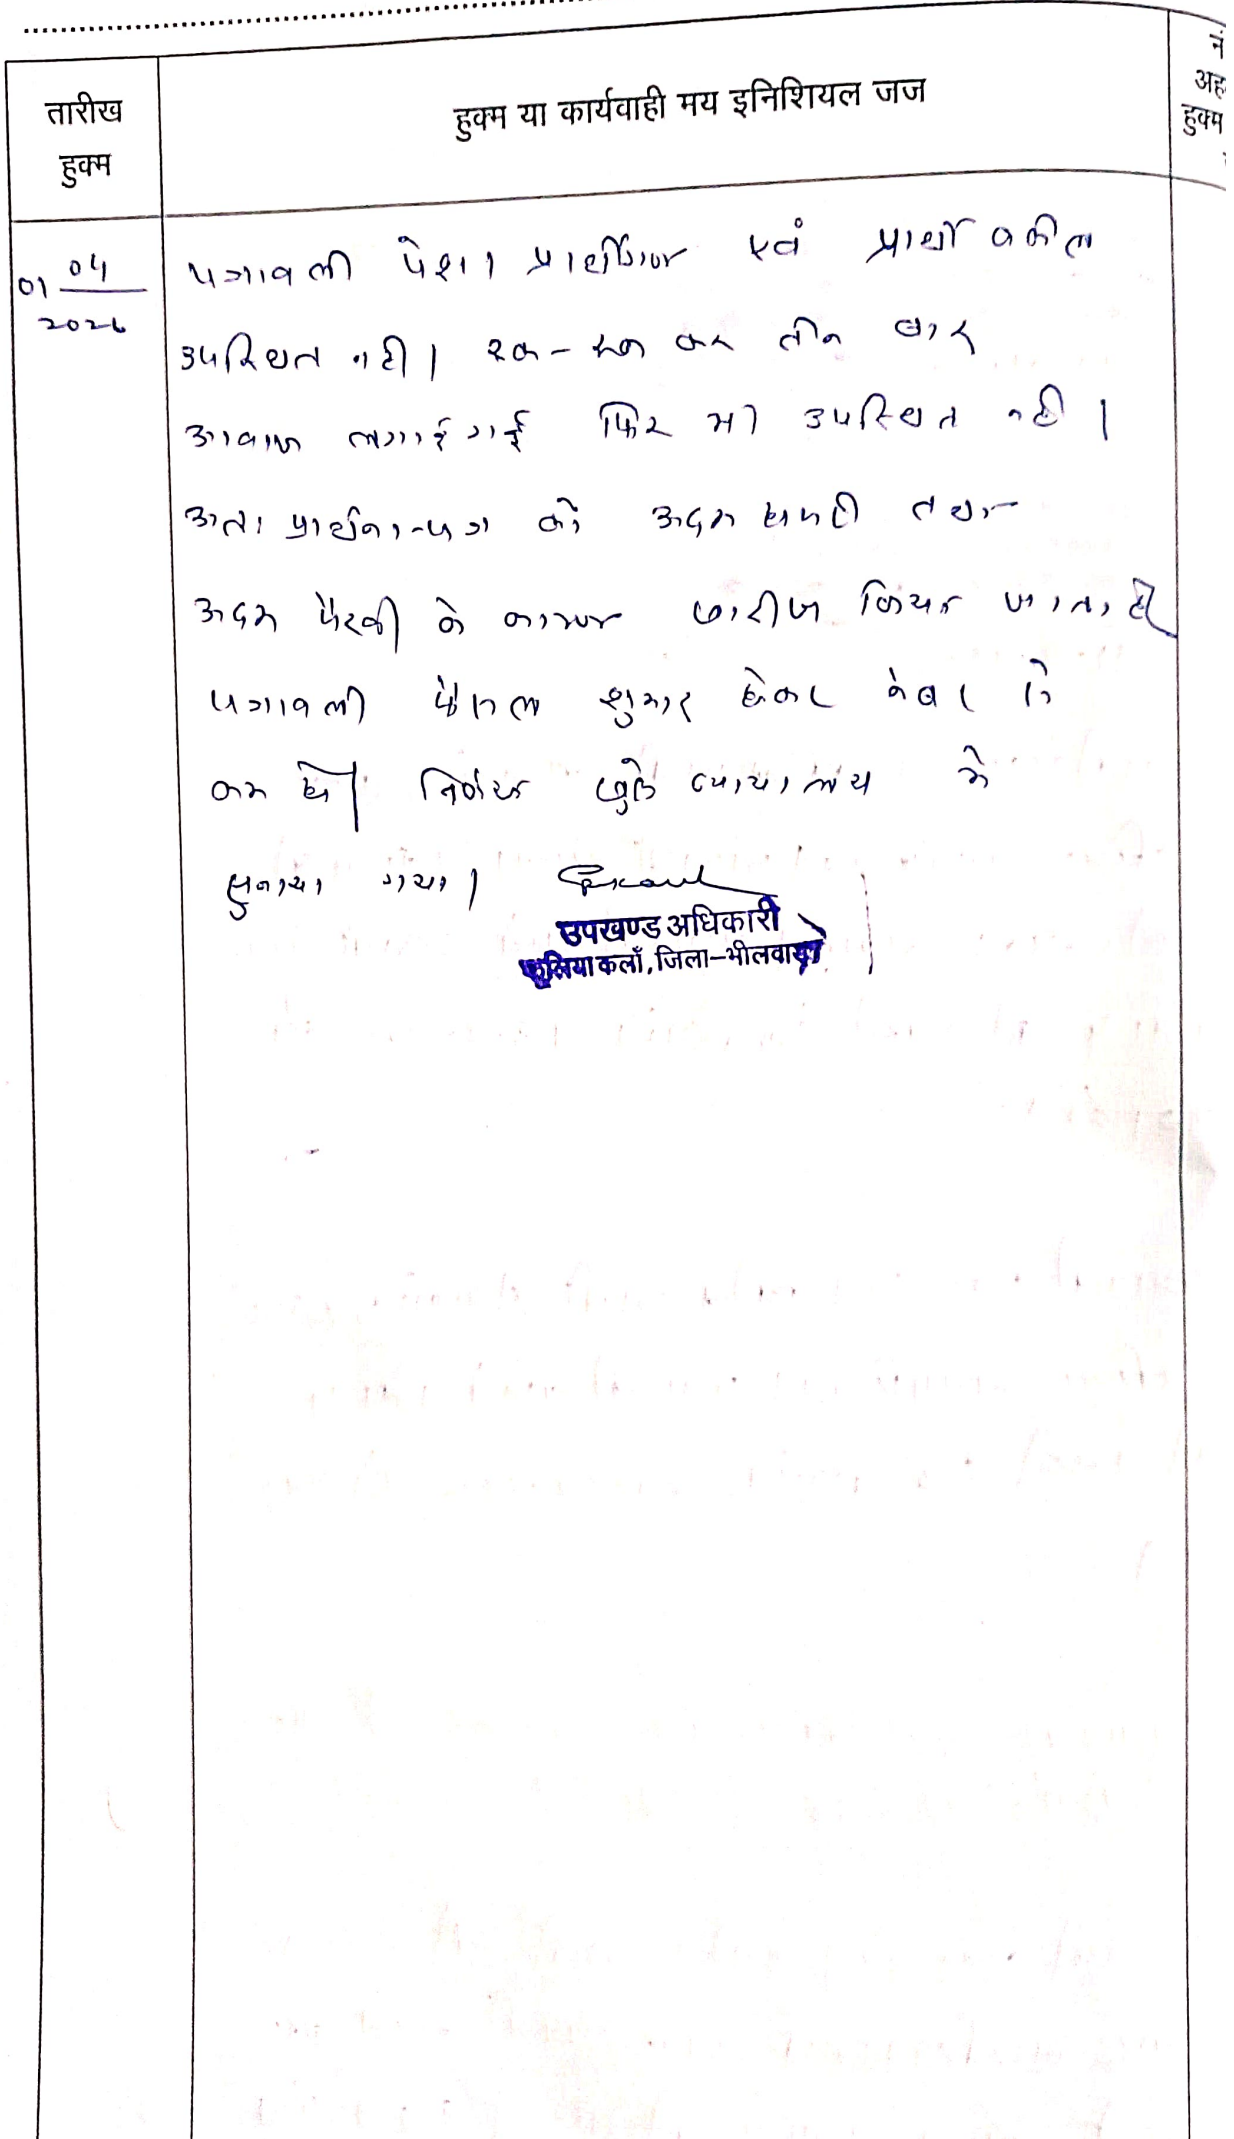 तारीख
हुक्म
हुक्म या कार्यवाही मय इनिशियल जज
अह
हुक्म
01 04
2026
पत्रावली पेश। प्रार्थीगण एवं प्रार्थी वकील
उपस्थित नही। रूक-रूक कर तीन बार
आवाज लगाई गई फिर भी उपस्थित नही।
अतः प्रार्थना-पत्र को अदम हाजरी तथा
अदम पैरवी के कारण खारीज किया जाता है
पत्रावली फैसल शुमार होकर नंबर से
कम हो। निर्णय खुले न्यायालय मे
सुनाया गया।
उपखण्ड अधिकारी
फूलिया कलाँ, जिला-भीलवाड़ा